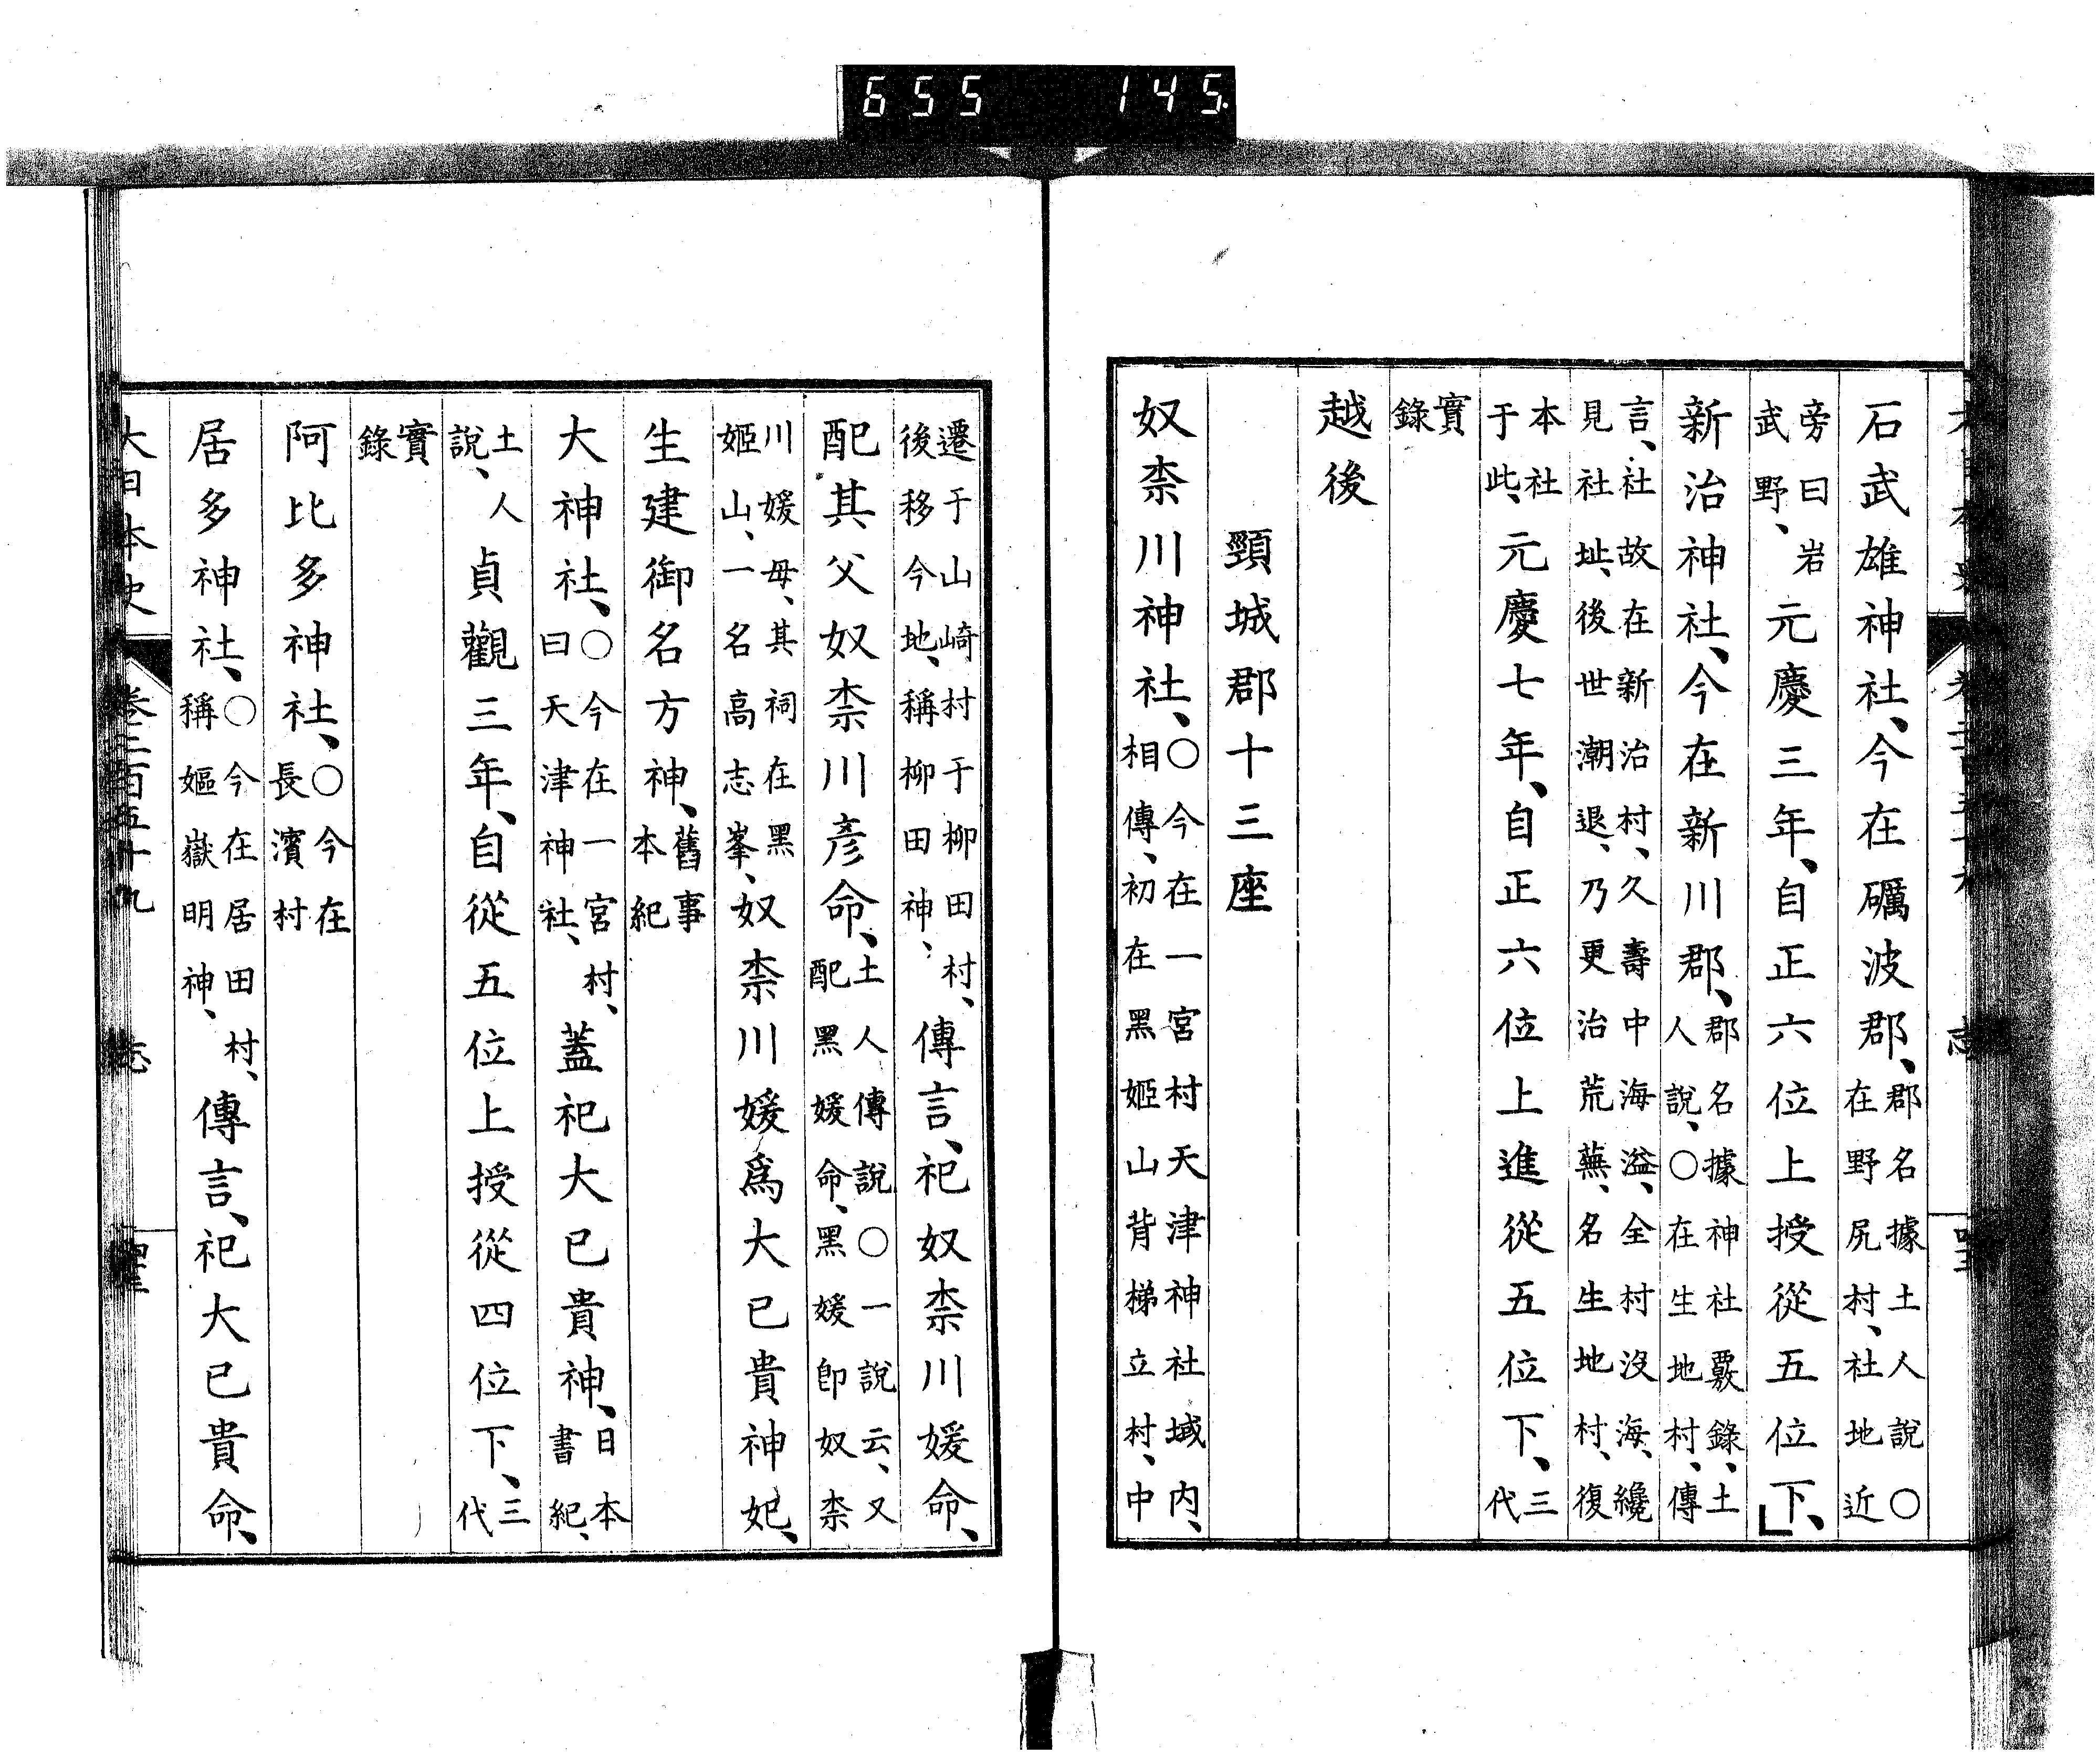 655 145
石武雄神社、今在礪波郡、郡名據土人說○在野尻村、社地近
旁曰岩武野、元慶三年、自正六位上授從五位下、
新治神社、今在新川郡、郡名據神社覈錄、土人說、○在生地村、傳
言、社故在新治村、久壽中海溢、全村沒海、纔見社址、後世潮退、乃更治荒蕪、名生地村、復
本社于此、元慶七年、自正六位上進從五位下、三代
實錄
越後
頸城郡十三座
奴柰川神社、○今在一宮村天津神社域内、相傳、初在黑姬山背梯立村、中
遷于山崎村于柳田村、後移今地、稱柳田神、傳言、祀奴柰川媛命、
配其父奴柰川彥命、土人傳說○一說云、又配黑媛命、黑媛卽奴柰
川媛母、其祠在黑姬山、一名高志峯、奴柰川媛爲大已貴神妃、
生建御名方神、舊事本紀
大神社、○今在一宮村、曰天津神社、蓋祀大已貴神、日本書紀、
土人說、貞觀三年、自從五位上授從四位下、三代
實錄
阿比多神社、○今在長濱村
居多神社、○今在居田村、稱嫗嶽明神、傳言、祀大已貴命、
大日本史 卷二百五十九 志